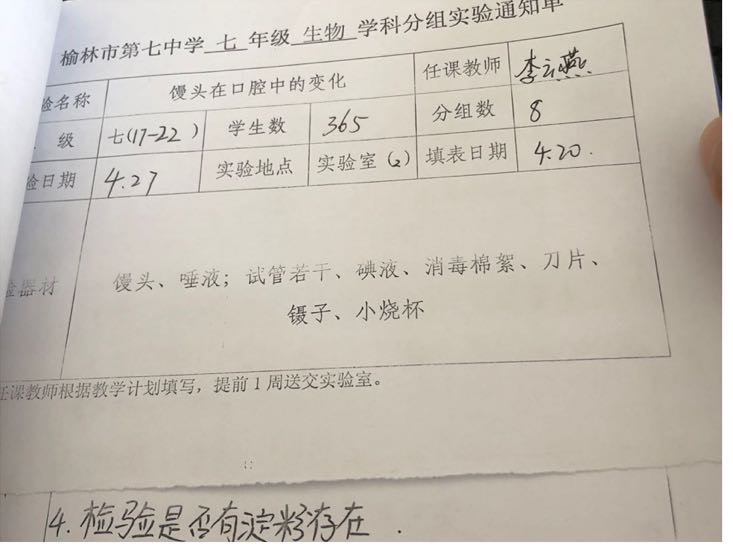 榆林市第七中学 七 年级 生物 学科分组实验通知单
验名称 馒头在口腔中的变化 任课教师 李云燕
级 七(17-22) 学生数 365 分组数 8
验日期 4.27 实验地点 实验室(2) 填表日期 4.20.
验器材 馒头、唾液；试管若干、碘液、消毒棉絮、刀片、
镊子、小烧杯
任课教师根据教学计划填写，提前1周送交实验室。
4. 检验是否有淀粉存在.